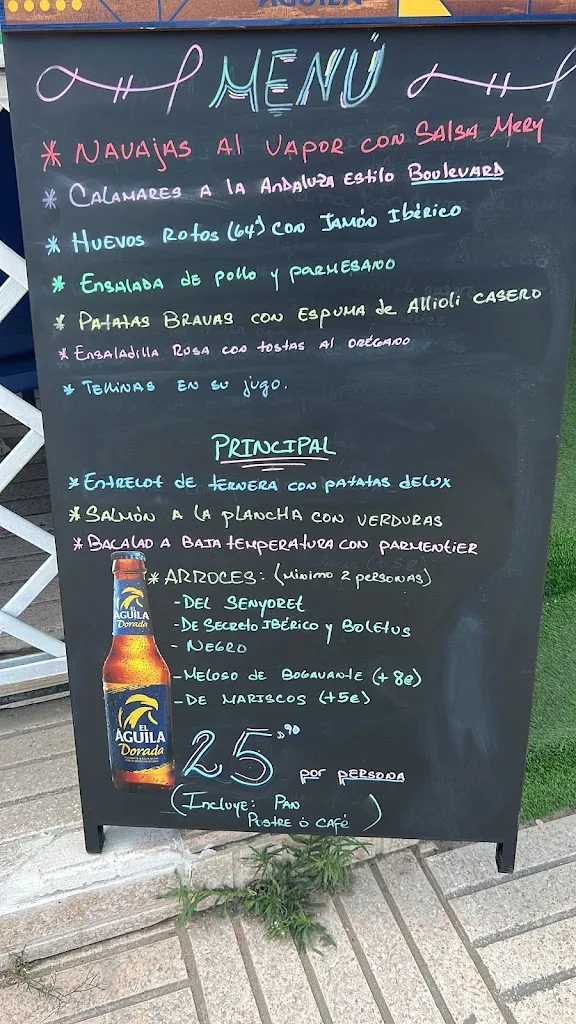 AGUILA
MENÚ
* NAVAJAS AL VAPOR CON SALSA MERY
* CALAMARES A LA ANDALUZA ESTILO BOULEVARD
* HUEVOS ROTOS (64º) CON JAMÓN IBÉRICO
* ENSALADA DE POLLO Y PARMESANO
* PATATAS BRAVAS CON ESPUMA DE ALLIOLI CASERO
* ENSALADILLA RUSA CON TOSTAS AL ORÉGANO
* TELLINAS EN SU JUGO.
PRINCIPAL
* ENTRECOT DE TERNERA CON PATATAS DELUX
* SALMÓN A LA PLANCHA CON VERDURAS
* BACALAO A BAJA TEMPERATURA CON PARMENTIER
* ARROCES: (MINIMO 2 PERSONAS)
- DEL SENYORET
- DE SECRETO IBÉRICO Y BOLETUS
- NEGRO
- MELOSO DE BOGAVANTE (+8€)
- DE MARISCOS (+5€)
EL
AGUILA
Dorada
EL
AGUILA
Dorada
25,90 POR PERSONA
(INCLUYE: PAN
POSTRE Ó CAFÉ)